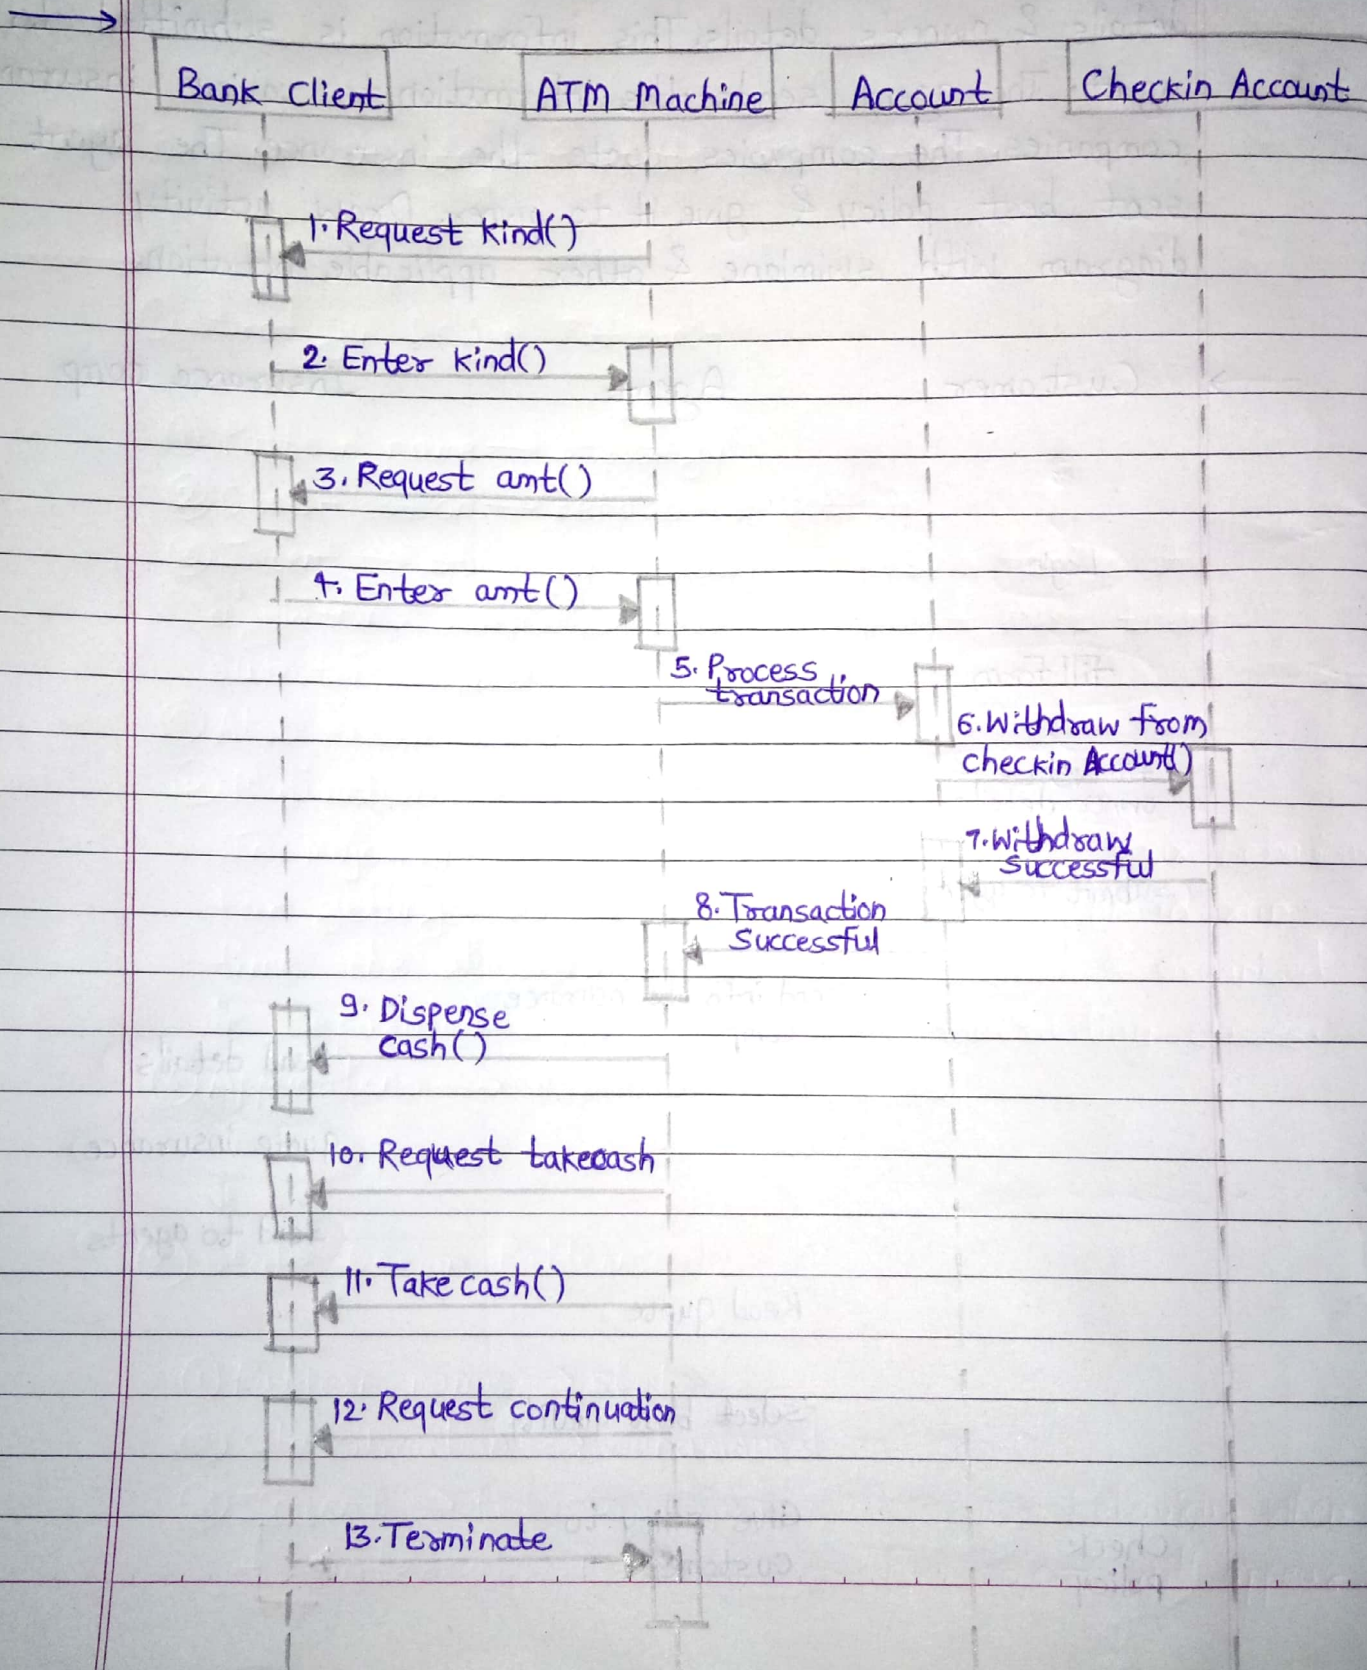 Bank Client
ATM Machine
Account
Checkin Account
1. Request kind()
2. Enter kind()
3. Request amt()
4. Enter amt()
5. Process
transaction
6. Withdraw from
checkin Account()
7. Withdraw
Successful
8. Transaction
Successful
9. Dispense
cash()
10. Request takecash
11. Take cash()
12. Request continuation
13. Terminate